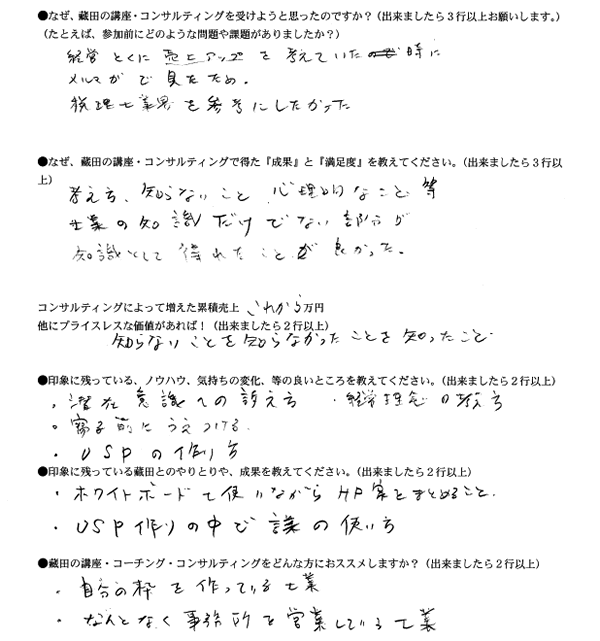 ●なぜ、蔵田の講座・コンサルティングを受けようと思ったのですか？（出来ましたら３行以上お願いします。）
（たとえば、参加前にどのような問題や課題がありましたか？）
経営 とくに 売上アップ を 考えていた 時に
メルマガで 見たため。
税理士業界 を 参考に したかった
●なぜ、蔵田の講座・コンサルティングで得た『成果』と『満足度』を教えてください。（出来ましたら３行以
上）
考え方、知らないこと 心理的なこと 等
士業の知識だけでない部分が
知識として 得れたことが 良かった。
コンサルティングによって増えた累積売上 これから万円
他にプライスレスな価値があれば！（出来ましたら２行以上）
知らないことを知らなかったことを知ったこと
●印象に残っている、ノウハウ、気持ちの変化、等の良いところを教えてください。（出来ましたら２行以上）
・潜在意識への訴え方 ・経営理念の教え方
・寝る前にうえつける
・USPの作り方
●印象に残っている蔵田とのやりとりや、成果を教えてください。（出来ましたら２行以上）
・ホワイトボードで使いながら HP案をまとめること
・USP作りの中で 言葉の使い方
●蔵田の講座・コーチング・コンサルティングをどんな方におススメしますか？（出来ましたら２行以上）
・自分の枠を作っている士業
・なんとなく事務所を営業している士業